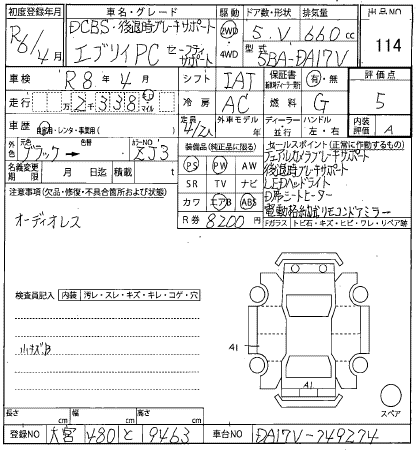 初度登録年月 車名・グレード 駆動 ドア数・形状 排気量 出品NO
R6/4月 DCBS・後退時ブレーキサポート 2WD 5 . V 660 cc 114
エブリイPC セーフティサポート 4WD 型式 5BA-DA17V
車検 R8年4月 シフト IAT 保証書 有・無 評価点
走行 2338 万 千 マイル 冷房 AC 燃料 G 5
車歴 自家用・レンタ・事業用( ) 定員 4/2人 外車モデル 年 ディーラー 並行 ハンドル 左・右 内装評価 A
外色 元色 ブラック → 色替 カラーNO ZJ3 装備品(純正品に限る) セールスポイント(正常に作動するもの)
名義変更期限 月 日迄 積載量 t PS PW AW デュアルカメラブレーキサポート
注意事項(欠品・修復・不具合箇所および状態) SR TV ナビ 後退時ブレーキサポート
オーディオレス カワ エアB ABS LEDヘッドライト
R券 8200円 D席シートヒーター
電動格納式リモコンドアミラー
Fガラス トビ石・キズ・ヒビ・ワレ・リペア跡
検査員記入 内装 汚レ・スレ・キズ・キレ・コゲ・穴
小キズ,B
A1
A1
スペア
長さ cm 幅 cm 高さ cm
登録NO 大宮 480 と 9463 車台NO DA17V-749274